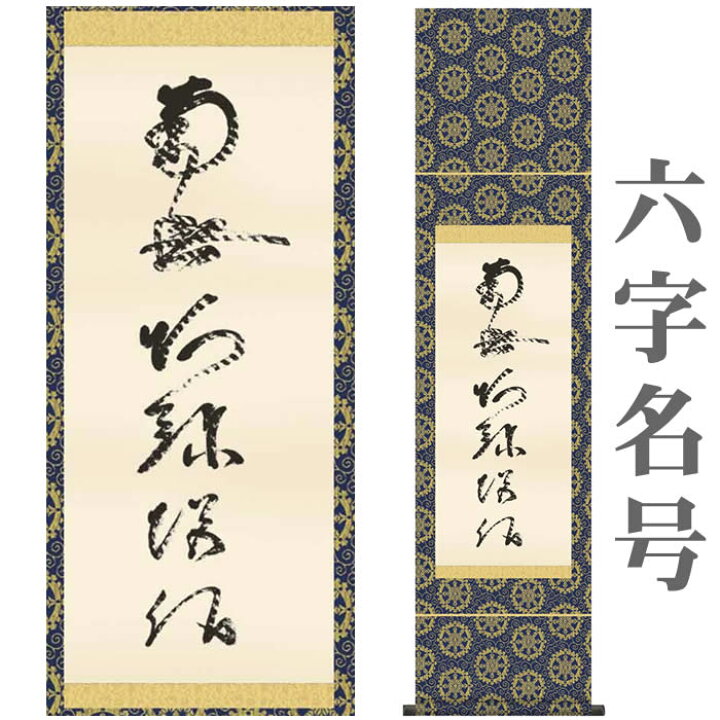 南無阿弥陀佛
南無阿弥陀佛
六字名号